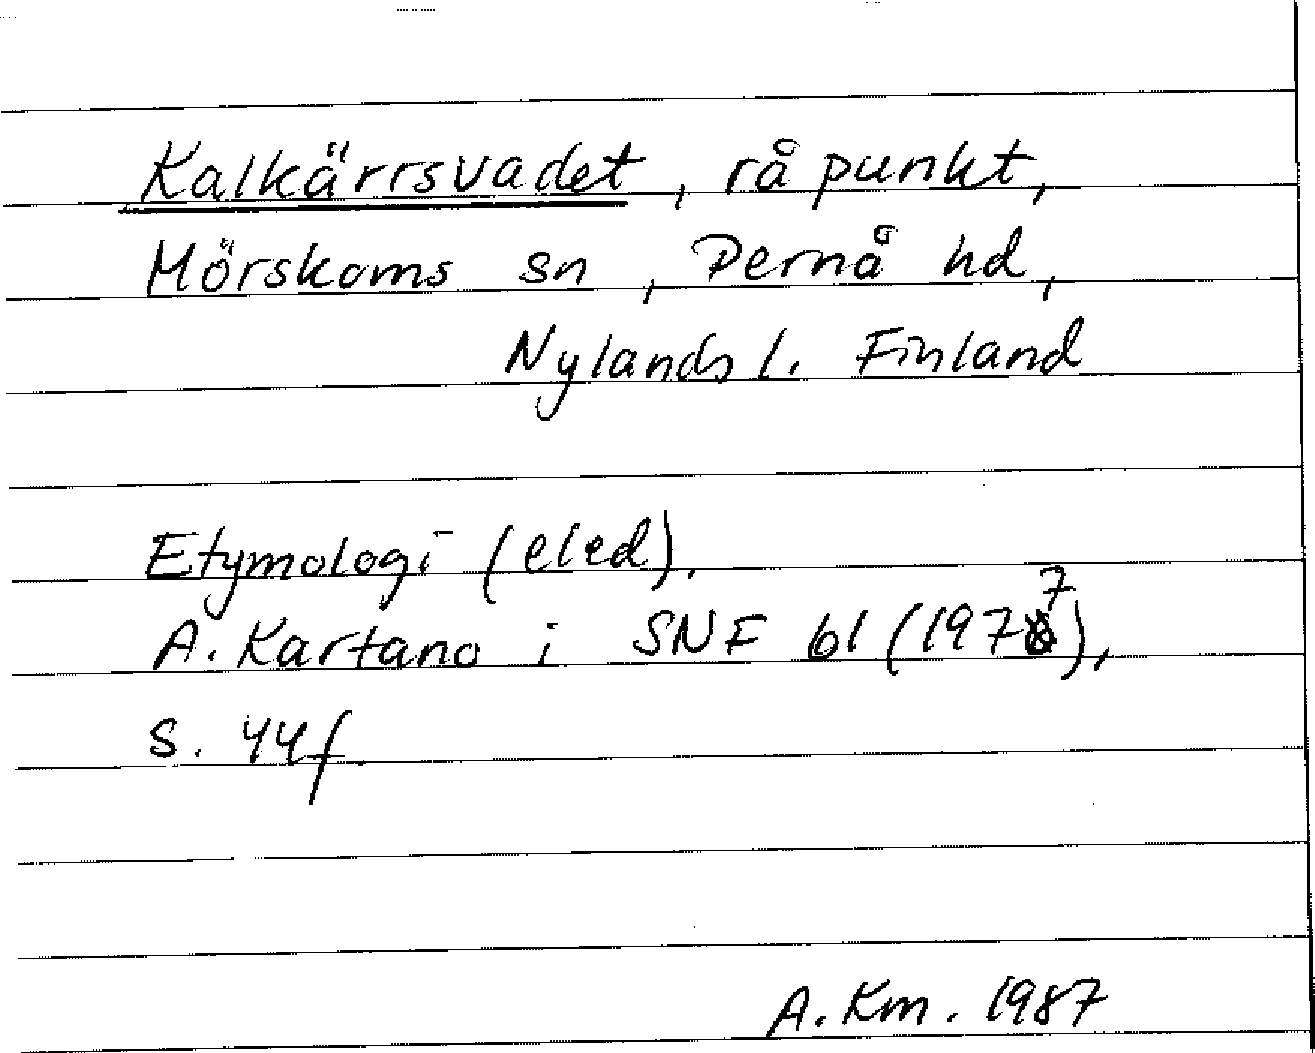 Kalkärrsvadet, råpunkt,
Mörskoms sn, Pernå hd,
Nylands l. Finland
Etymologi (eled).
A. Kartano i SNF 61 (1977),
s. 44f.
A. Km. 1987